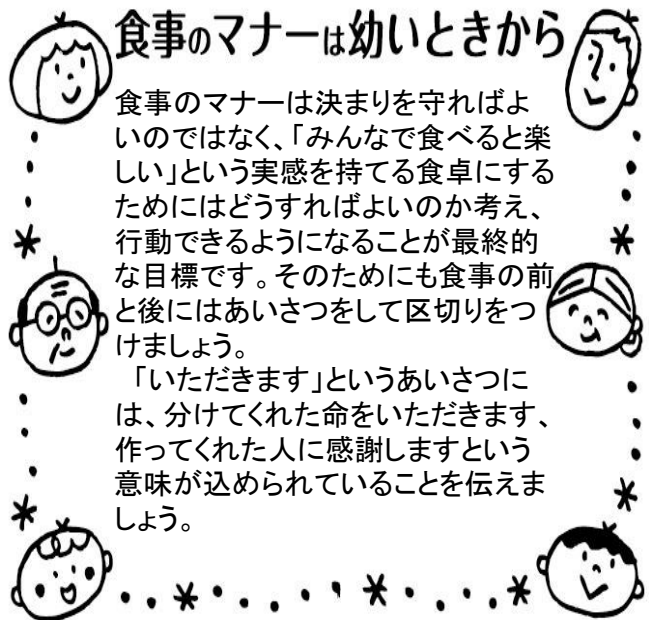 食事のマナーは幼いときから
食事のマナーは決まりを守ればよ
いのではなく、「みんなで食べると楽
しい」という実感を持てる食卓にする
ためにはどうすればよいのか考え、
行動できるようになることが最終的
な目標です。そのためにも食事の前
と後にはあいさつをして区切りをつ
けましょう。
「いただきます」というあいさつに
は、分けてくれた命をいただきます、
作ってくれた人に感謝しますという
意味が込められていることを伝えま
しょう。